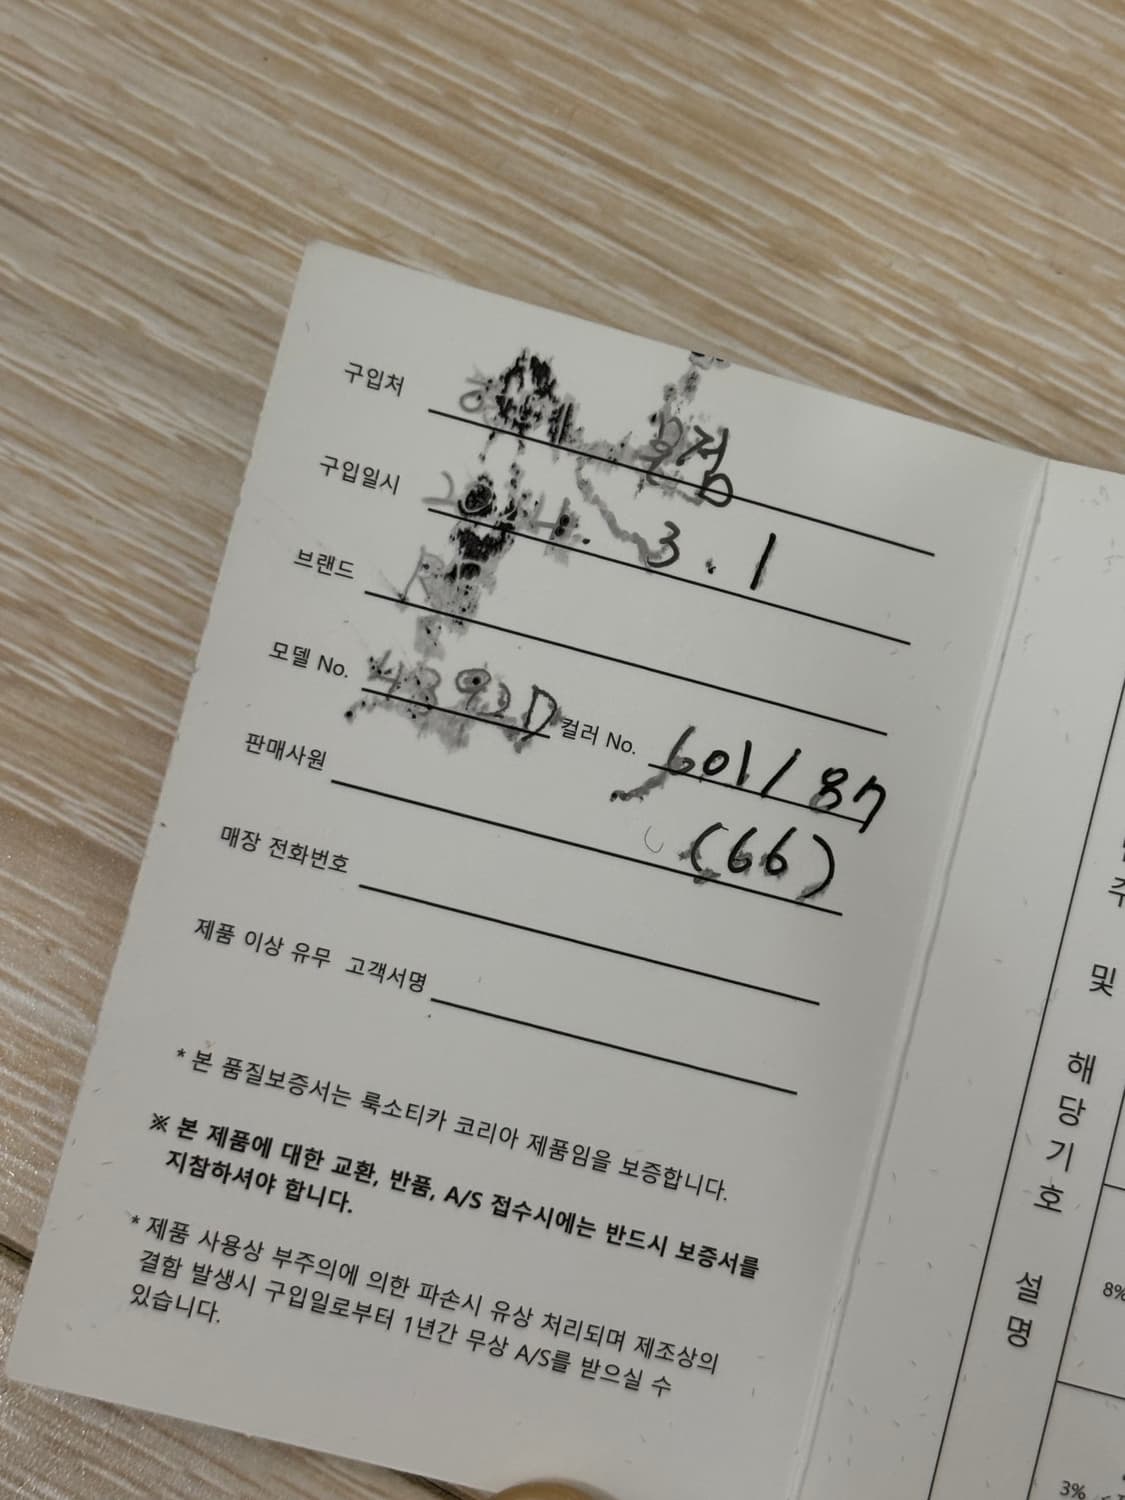 구입처 점
구입일시 3.1
브랜드
모델 No. 4392D 컬러 No. 601/87
(66)
판매사원
매장 전화번호
제품 이상 유무 고객서명
* 본 품질보증서는 룩소티카 코리아 제품임을 보증합니다.
※ 본 제품에 대한 교환, 반품, A/S 접수시에는 반드시 보증서를
지참하셔야 합니다.
* 제품 사용상 부주의에 의한 파손시 유상 처리되며 제조상의
결함 발생시 구입일로부터 1년간 무상 A/S를 받으실 수
있습니다.
및
해
당
기
호
설
명
8%
3%